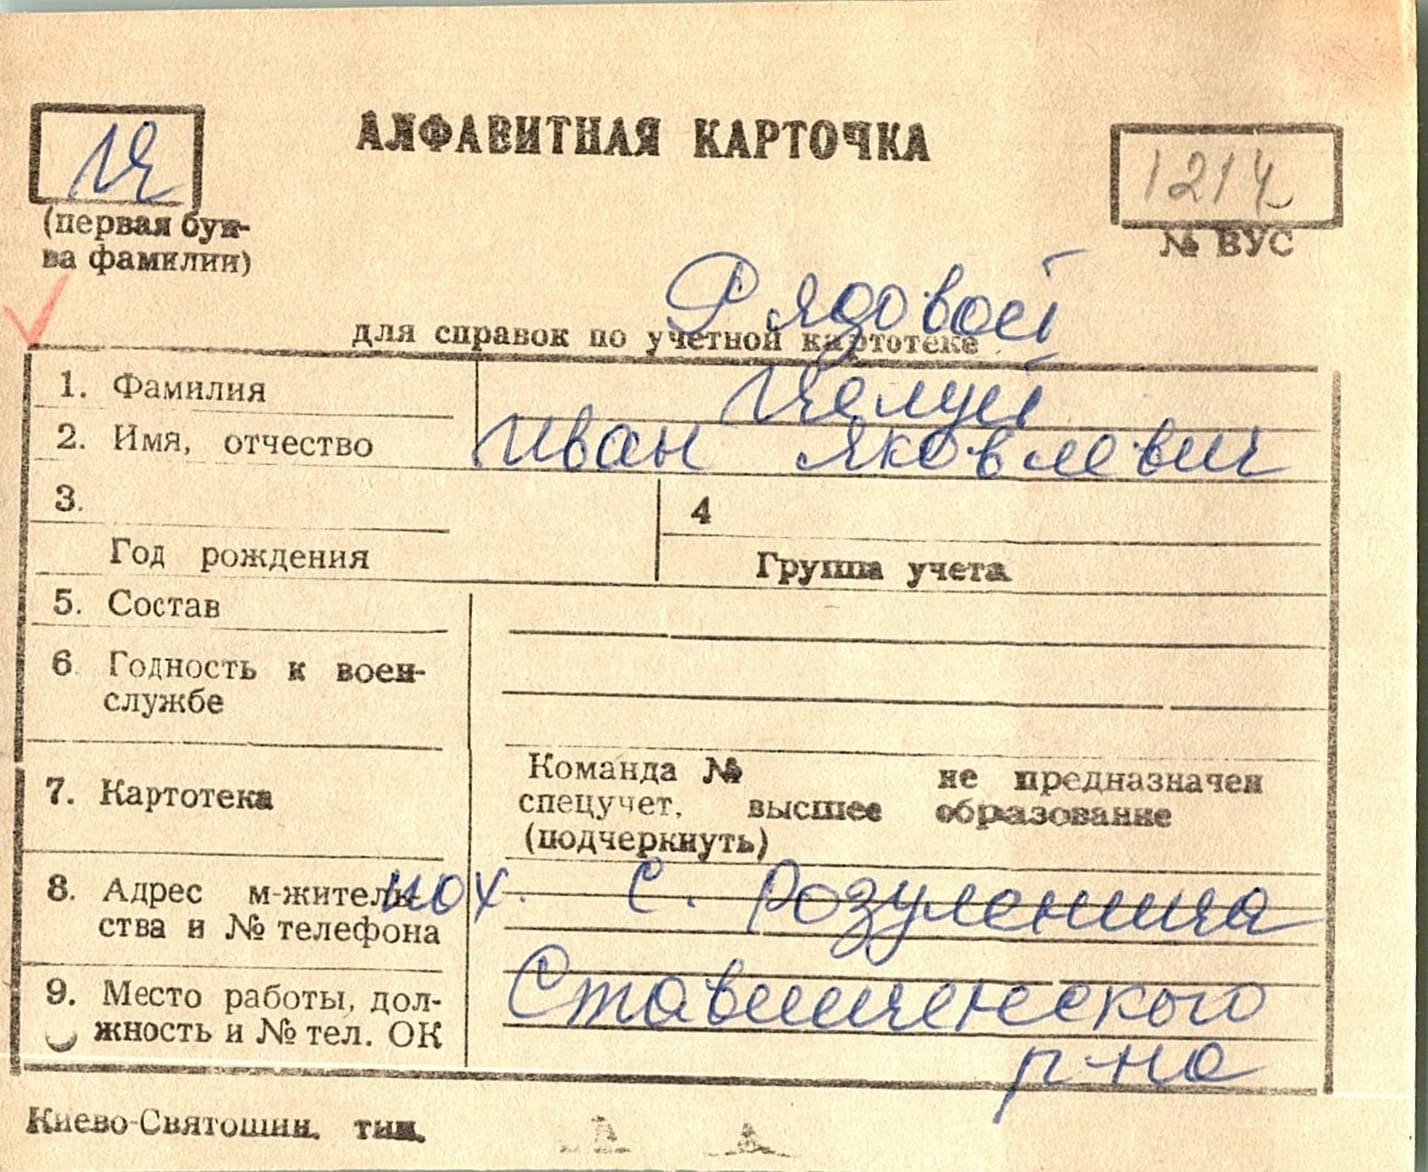 Ц
АЛФАВИТНАЯ КАРТОЧКА
1214
(первая бук-
ва фамилии)
№ ВУС
Рядовой
для справок по учетной картотеке
1. Фамилия Целуй
2. Имя, отчество Иван Яковлевич
3. 4
Год рождения Группа учета
5. Состав
6 Годность к воен-
службе
7. Картотека
Команда № не предназначен
спецучет, высшее образование
(подчеркнуть)
8. Адрес м-житель-
ства и № телефона
пох. С. Розумница
9. Место работы, дол-
жность и № тел. ОК
Ставищенского
р-на
Киево-Святошин. тип.